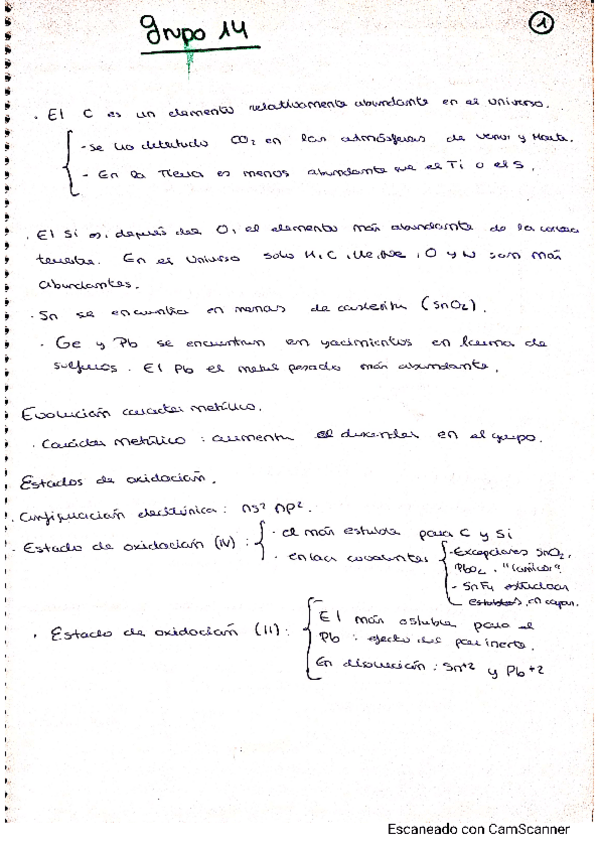 Grupo 14
1
· El C es un elemento relativamente abundante en el universo.
- Se ha detectado CO2 en las atmósferas de Venus y Marte.
- En la Tierra es menos abundante que el Ti o el S.
· El Si es, después del O, el elemento más abundante de la corteza
terrestre. En el universo solo H, C, He, Ne, O y N son más
abundantes.
· Sn se encuentra en menas de casiterita (SnO2).
· Ge y Pb se encuentran en yacimientos en forma de
sulfuros. El Pb el metal pesado más abundante.
Evolución carácter metálico.
· Carácter metálico: aumenta al descender en el grupo.
Estados de oxidación.
· Configuración electrónica: ns2 np2.
· Estado de oxidación (IV):
· el más estable para C y Si
· enlaces covalentes
- Excepciones SnO2,
PbO2. "iónicos".
- SnF4
en capas.
· Estado de oxidación (II):
El más estable para el
Pb: efecto del par inerte.
En disolución: Sn+2 y Pb+2
Escaneado con CamScanner